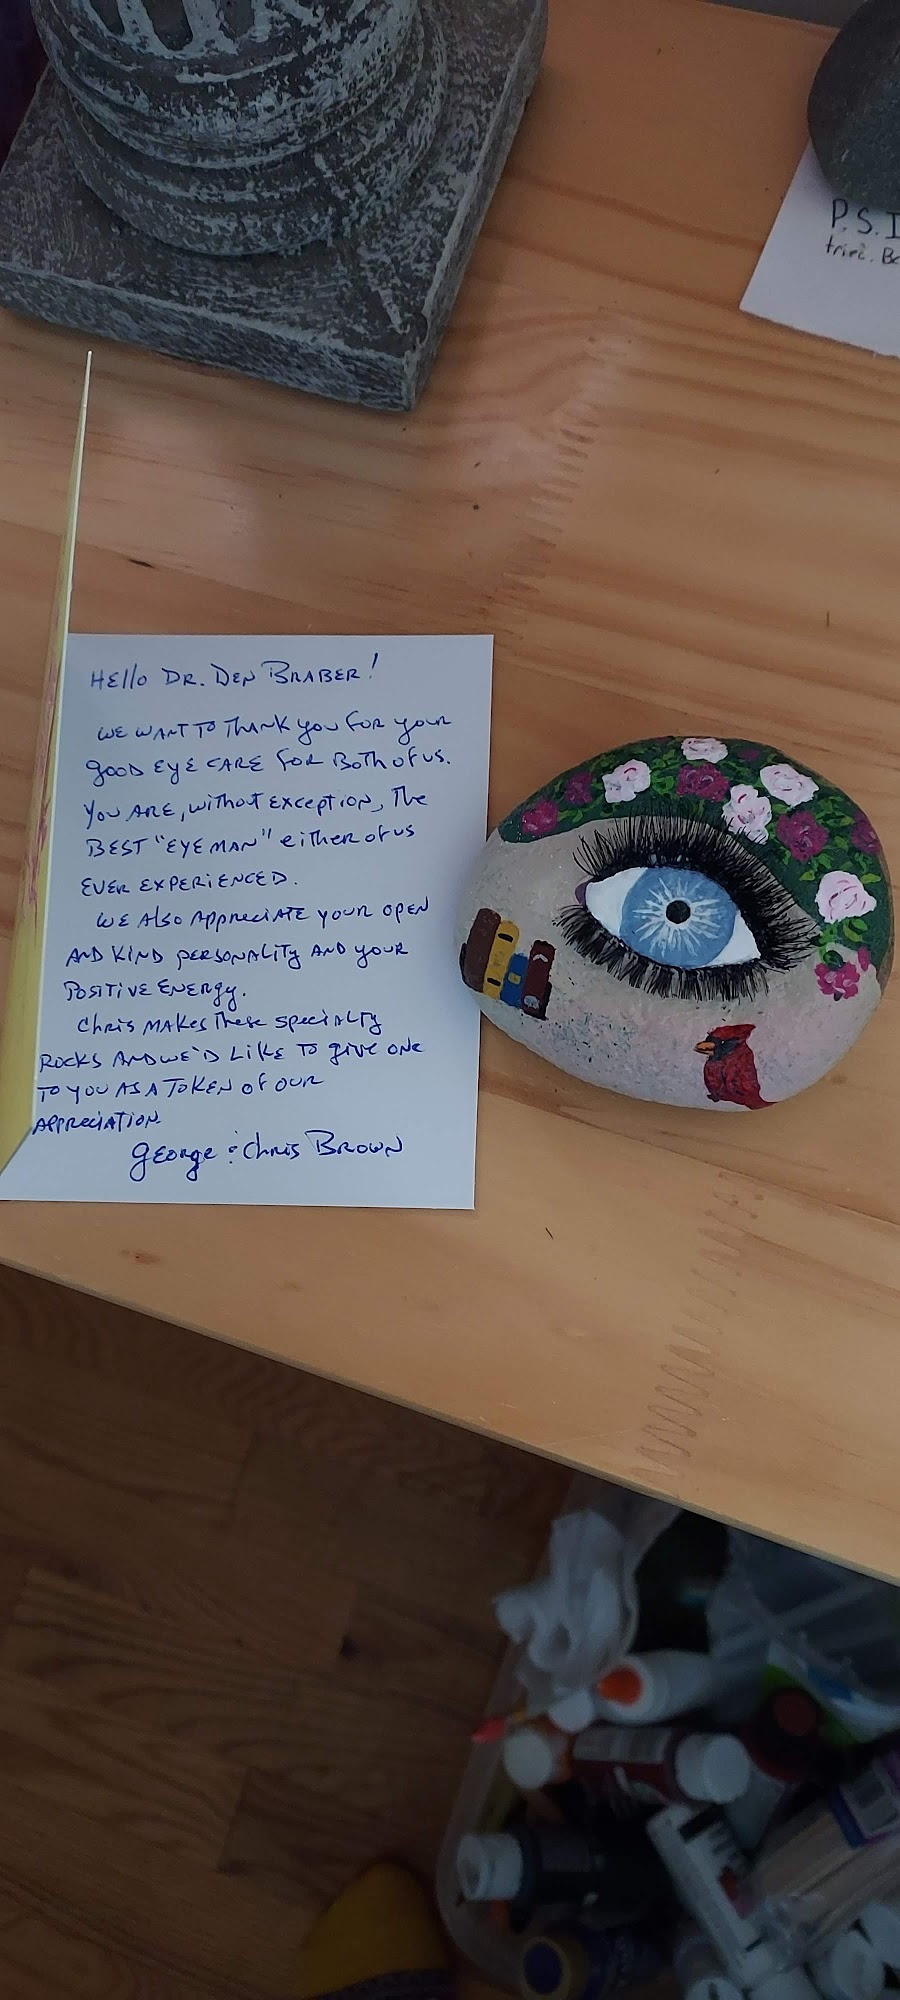 P.S. I
Hello Dr. Den Braber!
We want to thank you for your
good eye care for both of us.
You are, without exception, the
best "eye man" either of us
ever experienced.
We also appreciate your open
and kind personality and your
positive energy.
Chris makes these specialty
rocks and we'd like to give one
to you as a token of our
appreciation.
George & Chris Brown